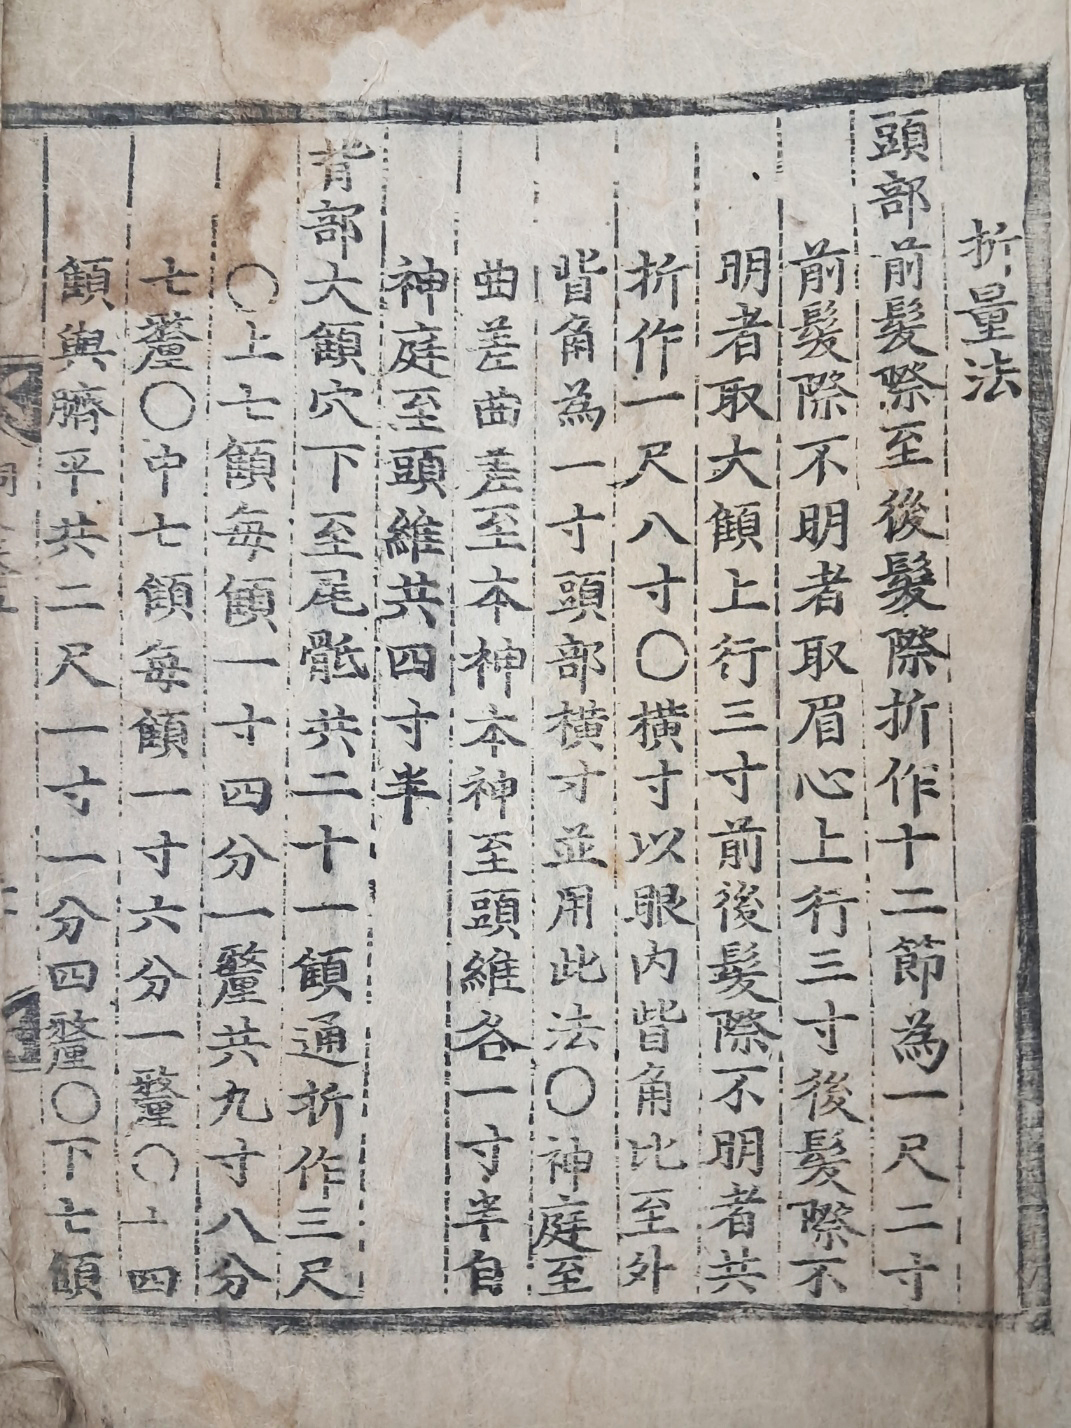 折量法
頭部前髮際至後髮際折作十二節為一尺二寸
前髮際不明者取眉心上行三寸後髮際不
明者取大顀上行三寸前後髮際不明者共
折作一尺八寸〇橫寸以眼内眥角比至外
眥角為一寸頭部橫寸並用此法〇神庭至
曲差曲差至本神本神至頭維各一寸半自
神庭至頭維共四寸半
背部大顀穴下至尾骶共二十一顀通折作三尺
〇上七顀每顀一寸四分一釐共九寸八分
七釐〇中七顀每顀一寸六分一釐〇十四
顀與臍平共二尺一寸一分四釐〇下七顀